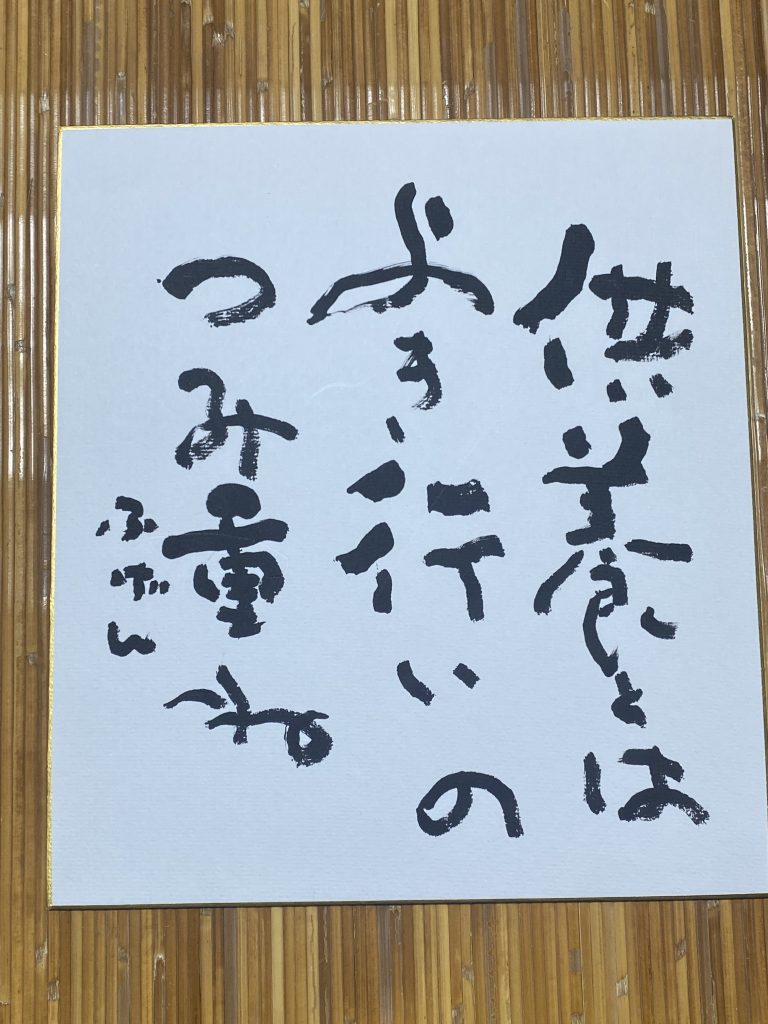 供養とは
よき行いの
つみ重ね
ふげん